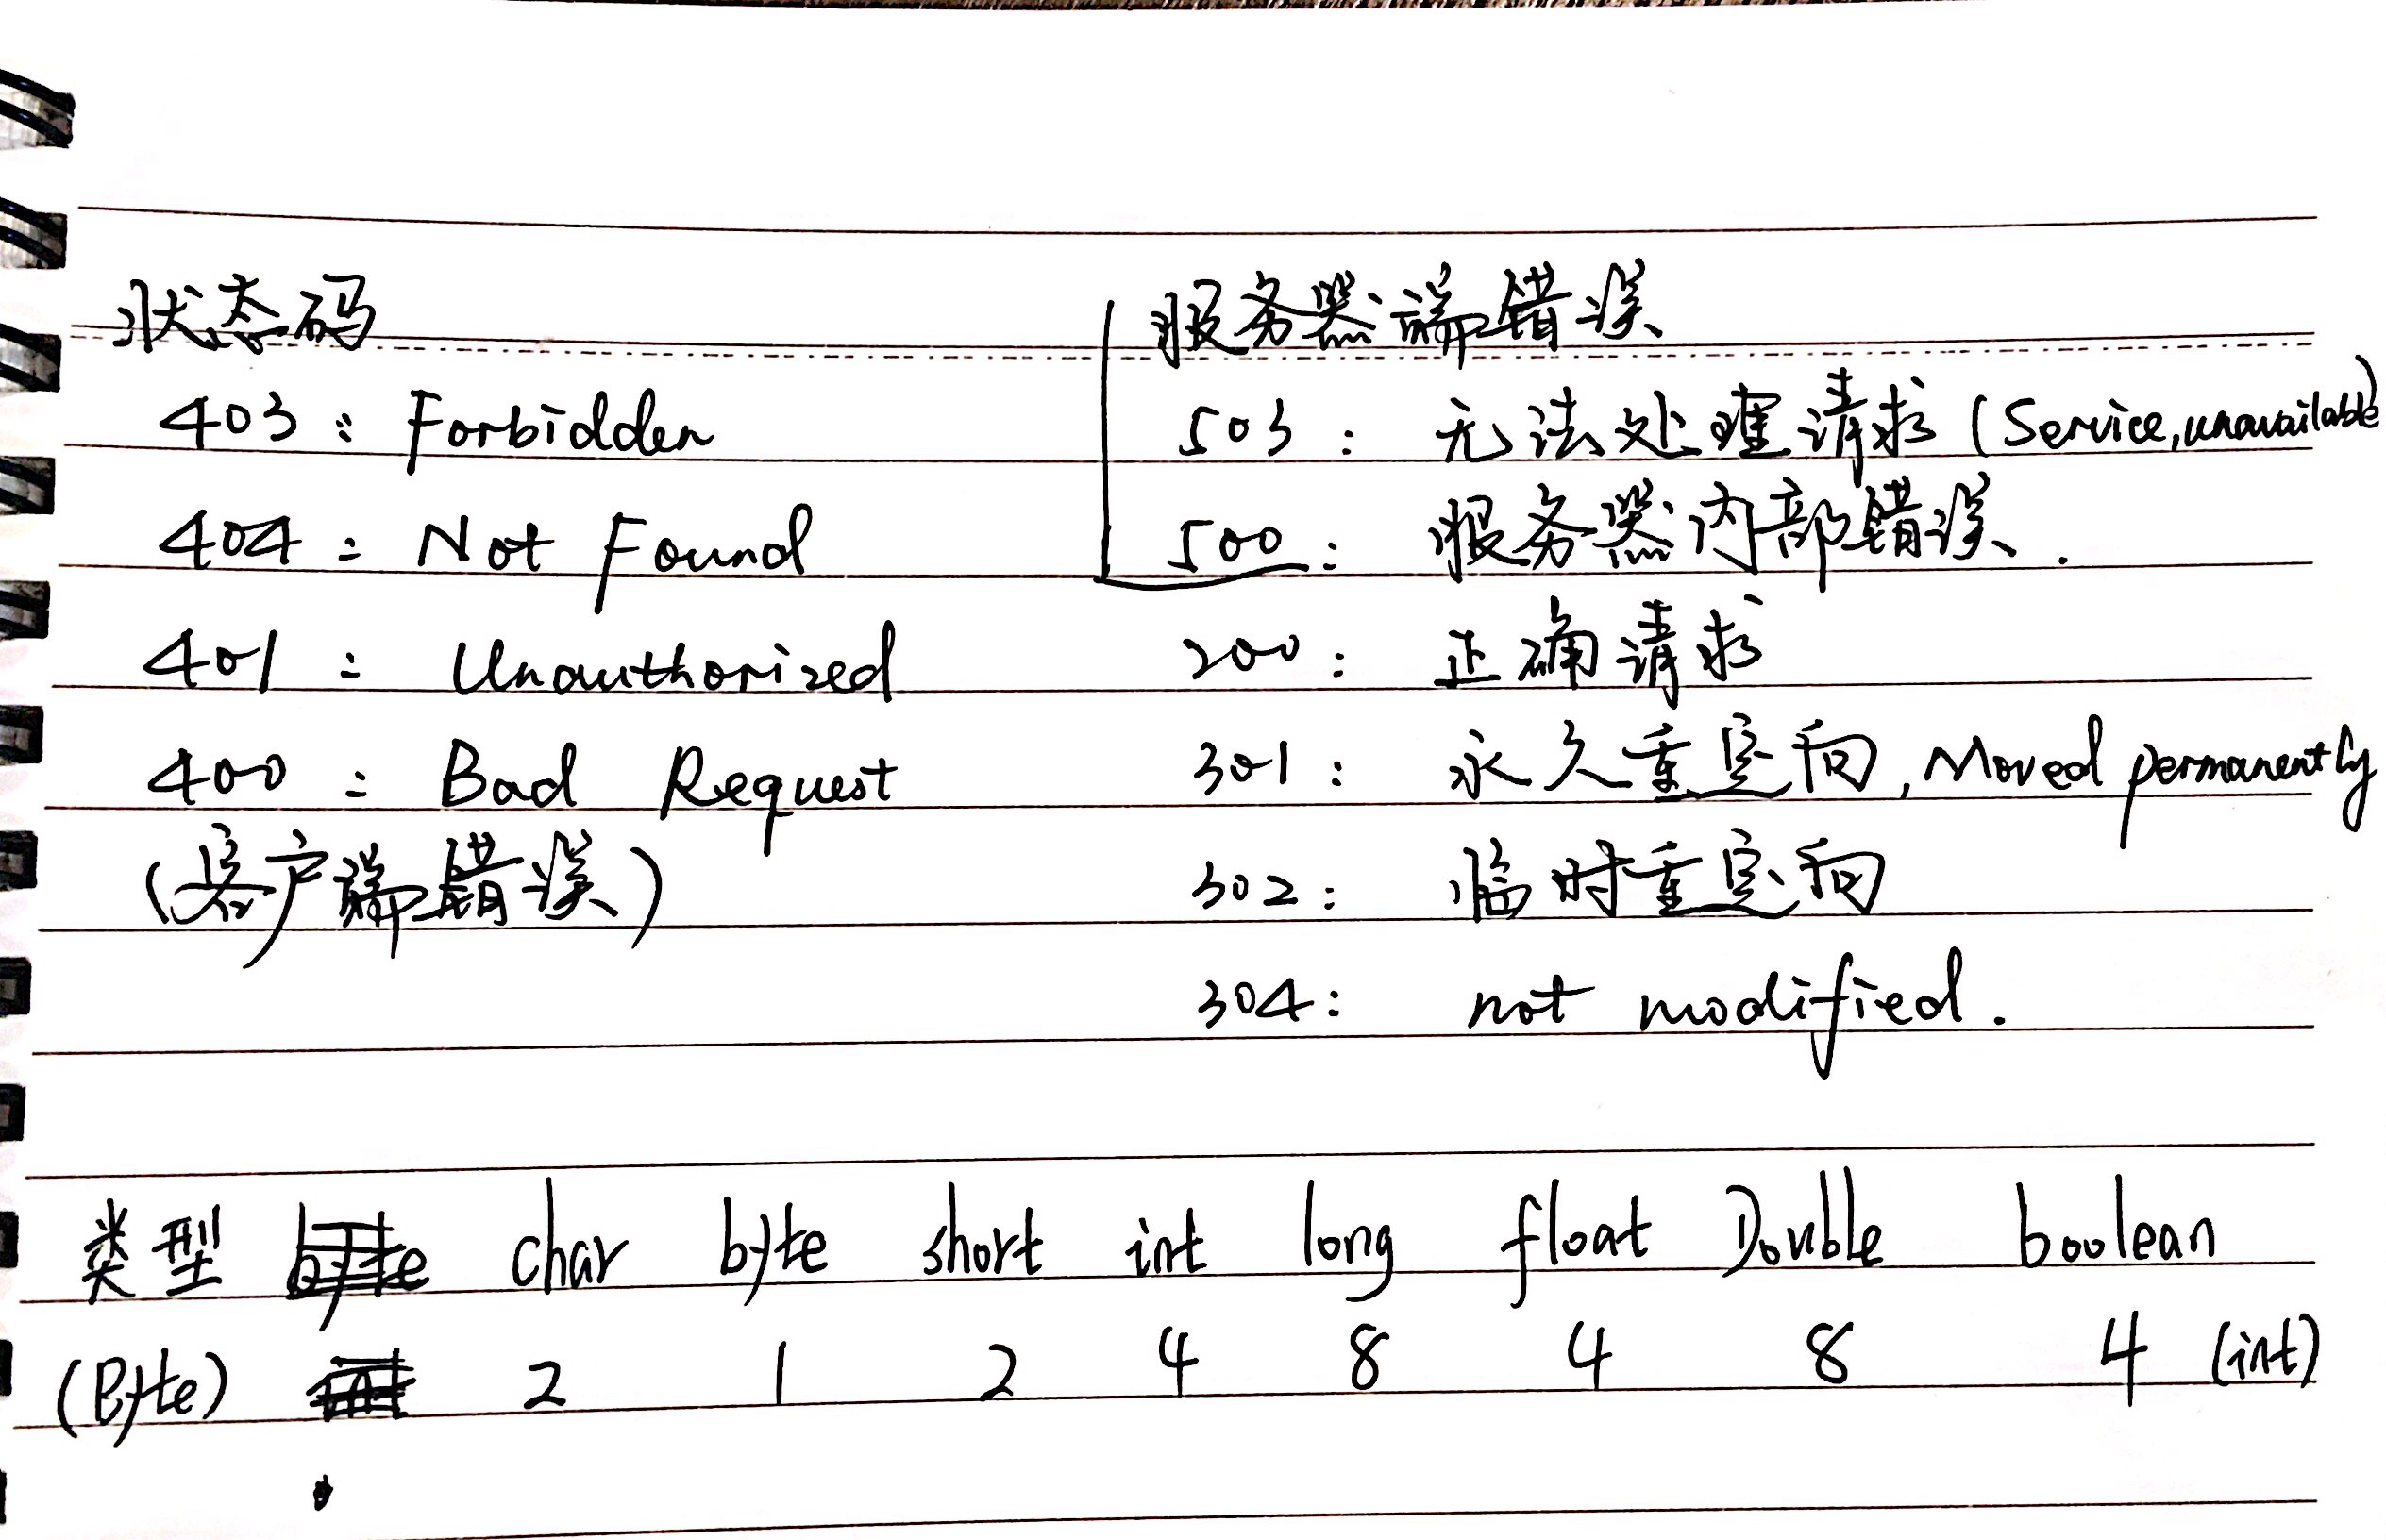 状态码
403: Forbidden
404: Not Found
401: Unauthorized
400: Bad Request
(客户端错误)
服务器端错误
503: 无法处理请求 (Service, unavailable)
500: 服务器内部错误.
200: 正确请求
301: 永久重定向, Moved permanently
302: 临时重定向
304: not modified.
类型 byte char byte short int long float Double boolean
(Byte) 2 1 2 4 8 4 8 4 (int)